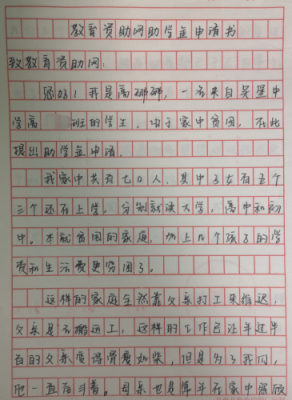 教育资助网助学金申请书
致教育资助网:
您好!我是高娜娜,一名来自吴堡中
学高 班的学生,由于家中贫困,在此
提出助学金申请。
我家中共有七口人,其中子女有五个
三个还在上学,分别就读大学,高中和初
中。本就贫困的家庭,加上几个孩子的学
费和生活费更穷困了。
这样的家庭全然靠父亲打工来维返,
父亲是名搬运工,这样的工作已让年过半
百的父亲变得骨瘦如柴,但是为了我们,
他一直在